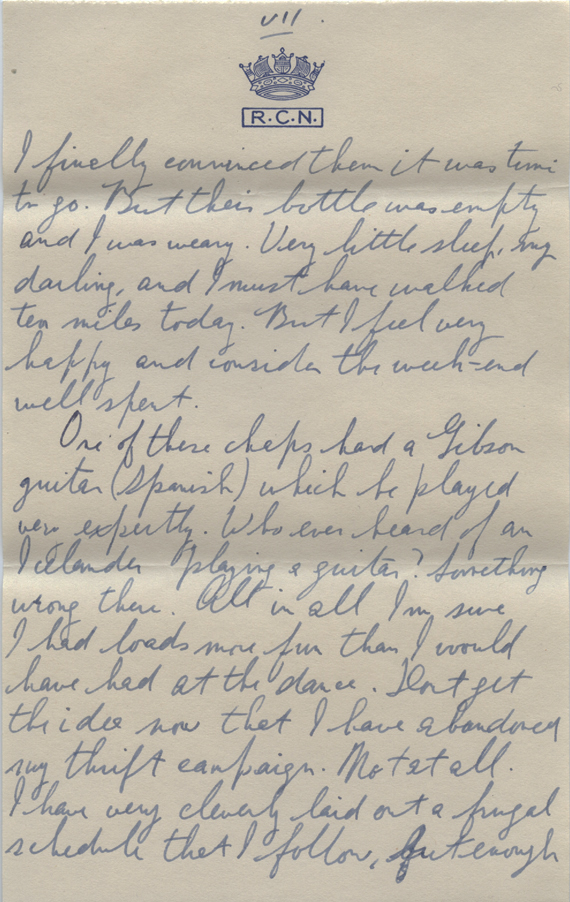 VII.
R.C.N.
I finally convinced them it was time
to go. But their bottle was empty
and I was weary. Very little sleep, my
darling, and I must have walked
ten miles today. But I feel very
happy and consider the week-end
well spent.
One of these chaps had a Gibson
guitar (Spanish) which he played
very expertly. Who ever heard of an
Icelander playing a guitar? Something
wrong there. All in all I'm sure
I had loads more fun than I would
have had at the dance. Don't get
the idea now that I have abandoned
my thrift campaign. Not at all.
I have very cleverly laid out a frugal
schedule that I follow, but enough